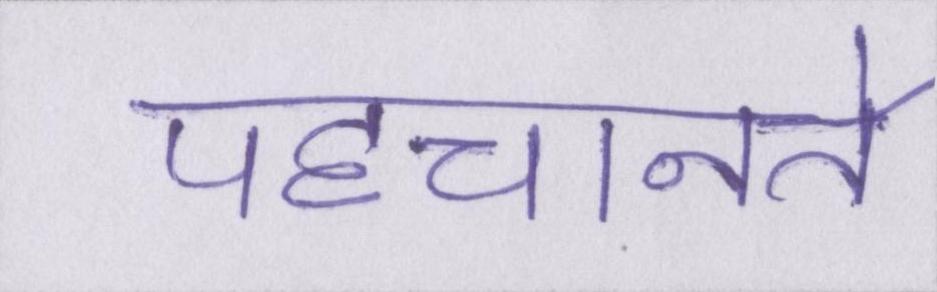 पहचानते